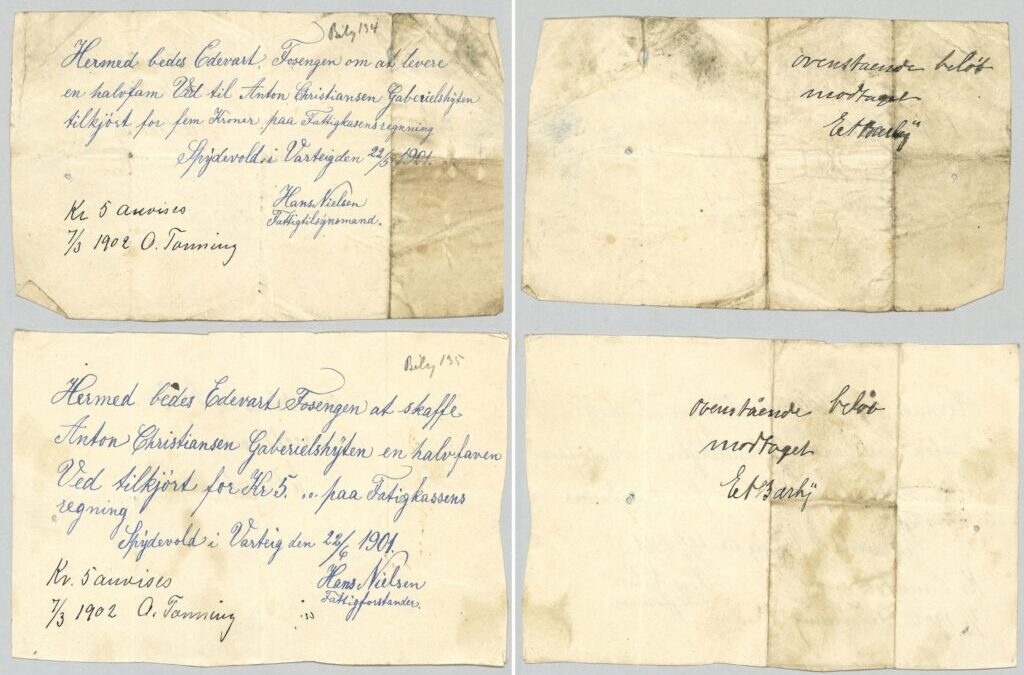 Bilag 134
Hermed bedes Edevart Fosengen om at levere
en halvfam Ved til Anton Christiansen Gaberielshÿten
tilkjørt for fem Kroner paa Fattigkasensregnning
Spÿdevold i Varteig den 22/5 1901.
Hans Nielsen
Fattigtilsÿnsmand.
Kr 5 anvises
7/3 1902 O. Tonning
ovenstaaende beløb
modtaget
Bilag 135
Hermed bedes Edevart Fosengen at skaffe
Anton Christiansen Gaberielshÿten en halvfaven
Ved tilkjørt for Kr 5. .. paa Fatigkassens
regning
Spÿdevold i Varteig den 22/6 1901.
Hans Nielsen
Fattigforstander.
Kr. 5 anvises
7/3 1902 O. Tonning
ovenstående beløb
modtaget